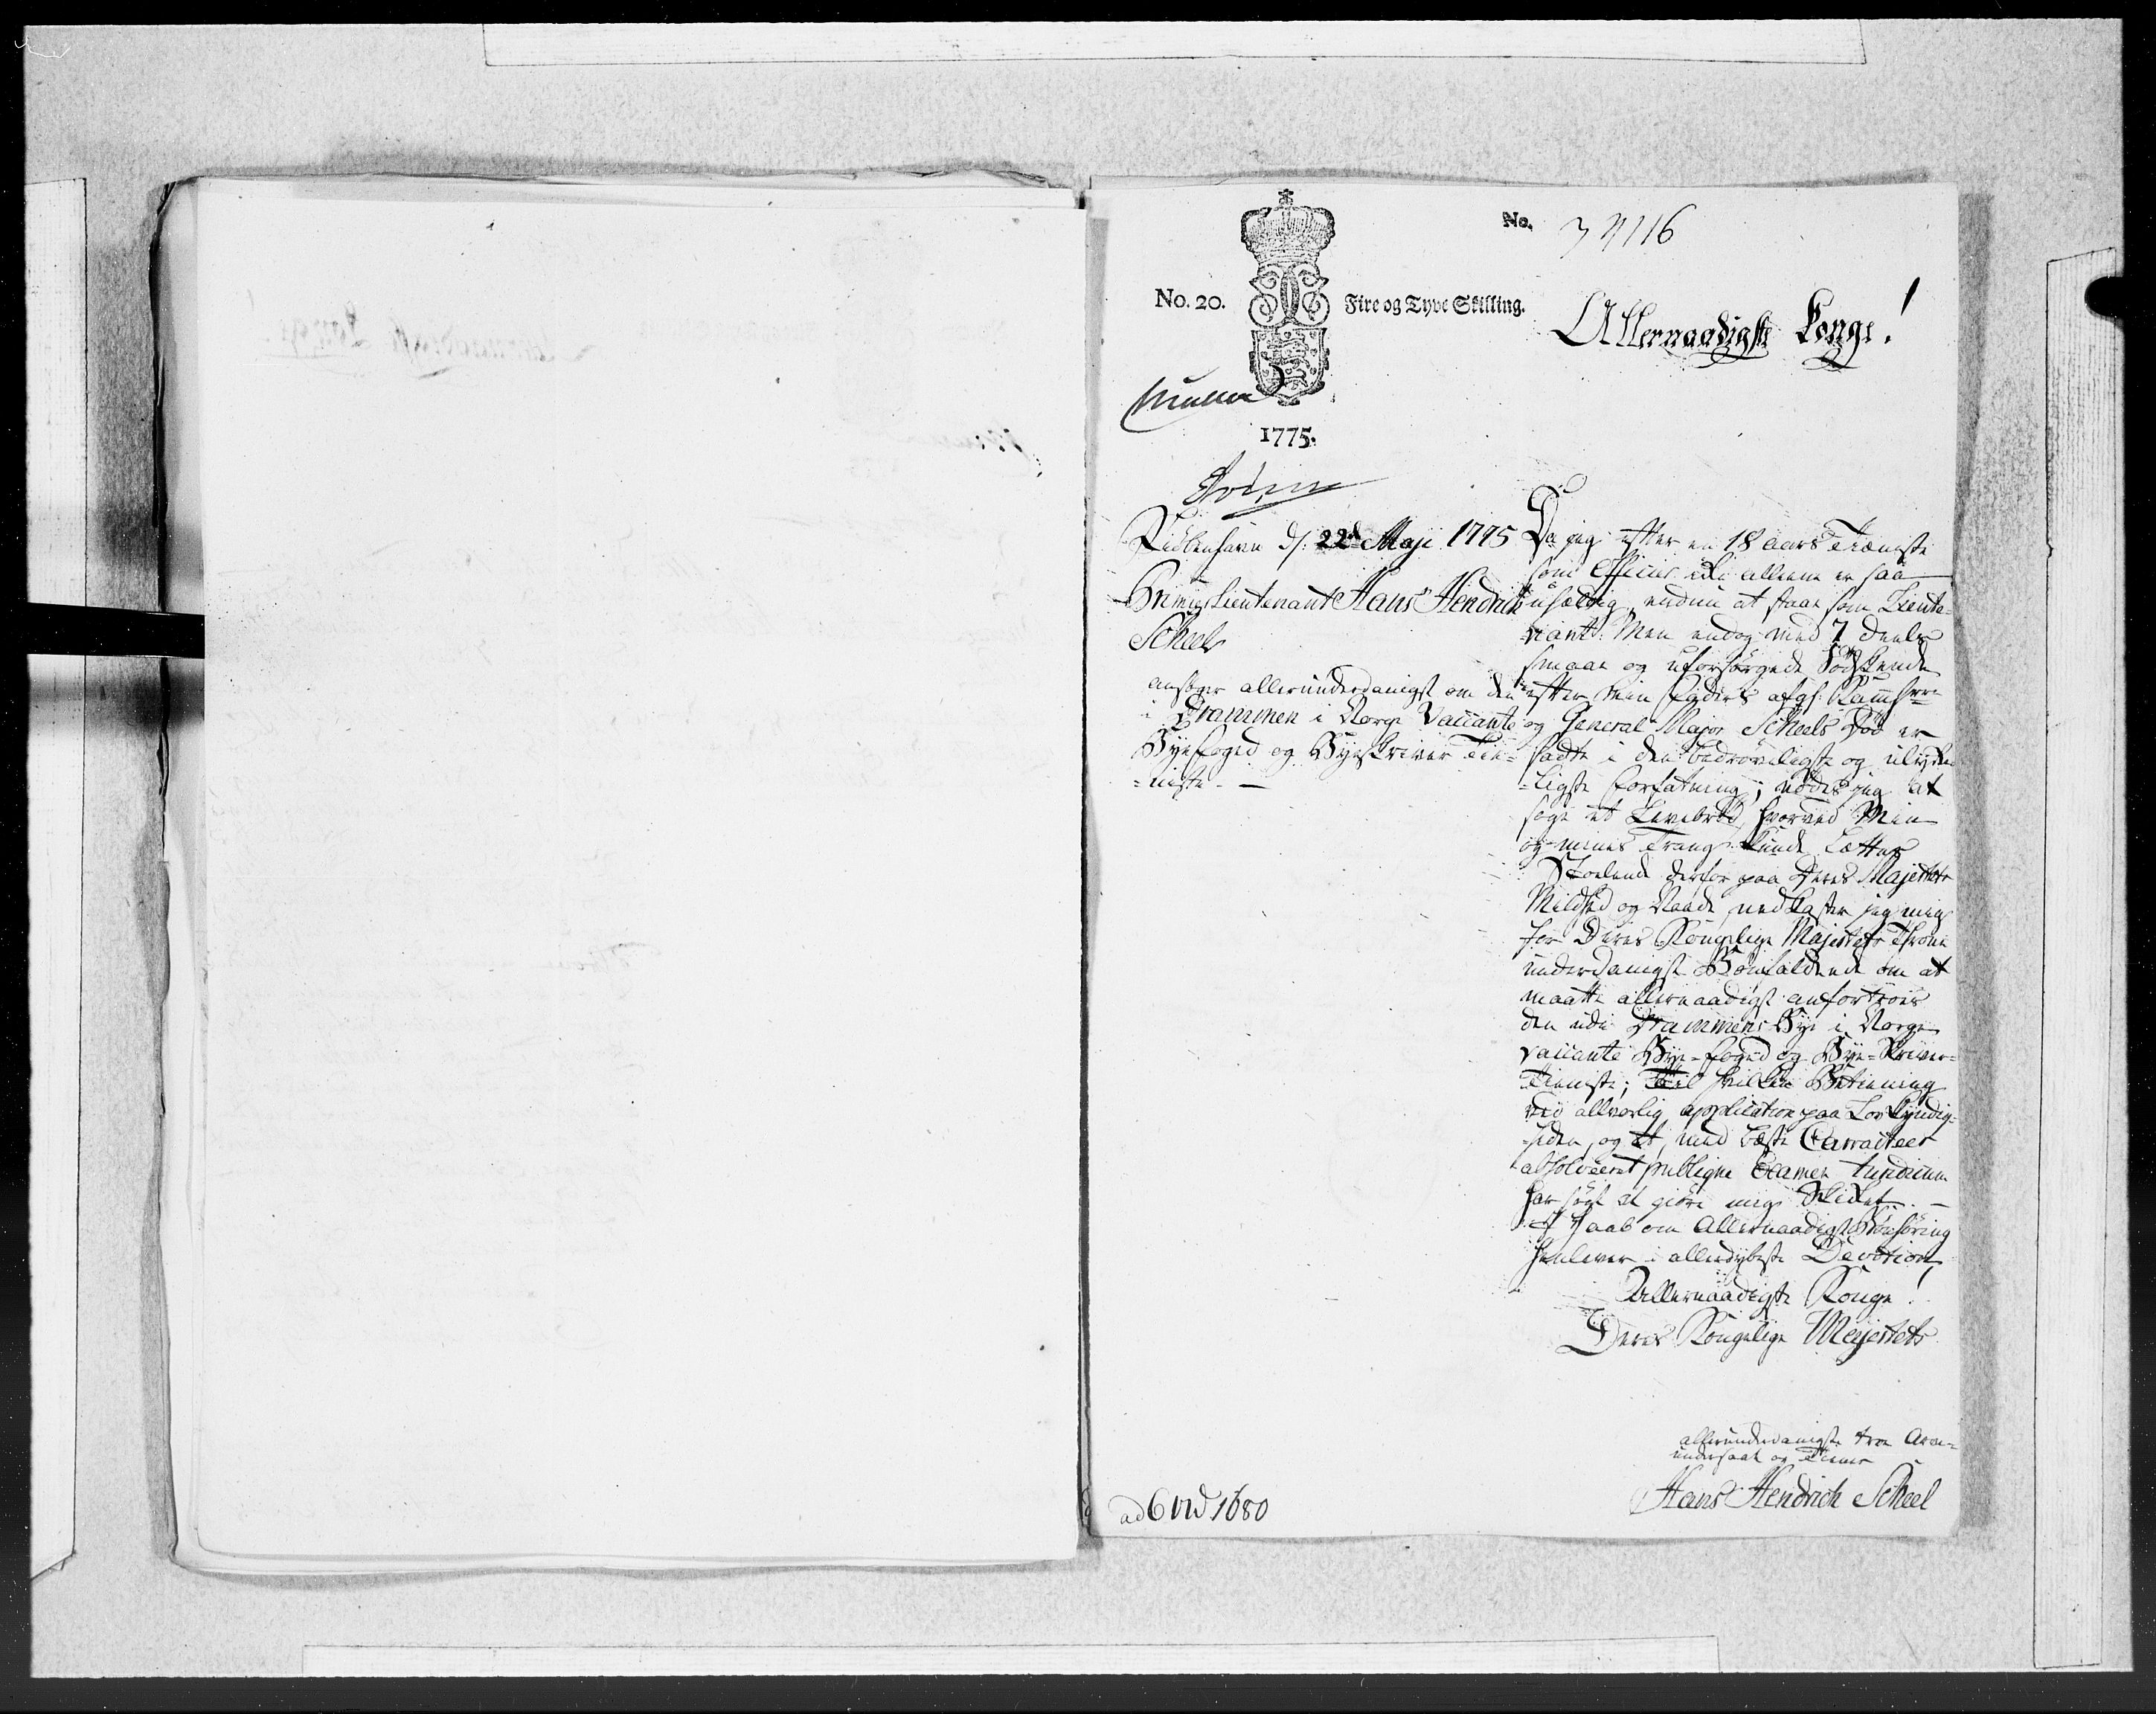 No. 34116
No. 20. Fire og Tyve Skilling.
Allernaadigste Konge!
1775.
Kiöbenhavn d. 22d Maji 1775
Premier Lieutenant Hans Hendrich
Scheel
ansöger allerunderdanigst om den
i Drammen i Norge Vacante
Byefoged og Byeskriver Tie-
-niste. —
Da jeg efter en 18 aars Tieneste
som Officier ikke alleene er saa
uheldig, endnu at staae som Lieute-
nant: Men endog med 7 deels
smaae og uforsörgede Södskende
efter min Faders afg:
og General Major Scheels Död er
sadt i den bedröveligste og
-ligste Forfatning; nödes jeg at
söge et Levebröd, hvorved Min
og mines Trang kunde Lættes
Stolende derfor paa Deres Majestets
Mildhed og Naade, nedkaster jeg mig
for Deres Kongelige Majestets Throne
underdanigst Bönfaldende om at
maatte allernaadigst anfortroes
den udi Drammens Bye i Norge
vacante Bye-foged og Bye-Skriver-
Tieneste; til hvilken Betiening
ved alvorlig application paa Lovkyndig-
-heden, og et, med beste Carracteer
absolveeret publique Examen Juridicum
har sögt at giöre mig Skicket. —
I Haab om Allernaadigst Bönhöring
henlever i allerdybeste Devotion
Allernaadigste Konge!
Deres Kongelige Majestets
allerunderdanigste troe Arve-
undersaat og Tiener
Hans Hendrich Scheel
ad 6 1680